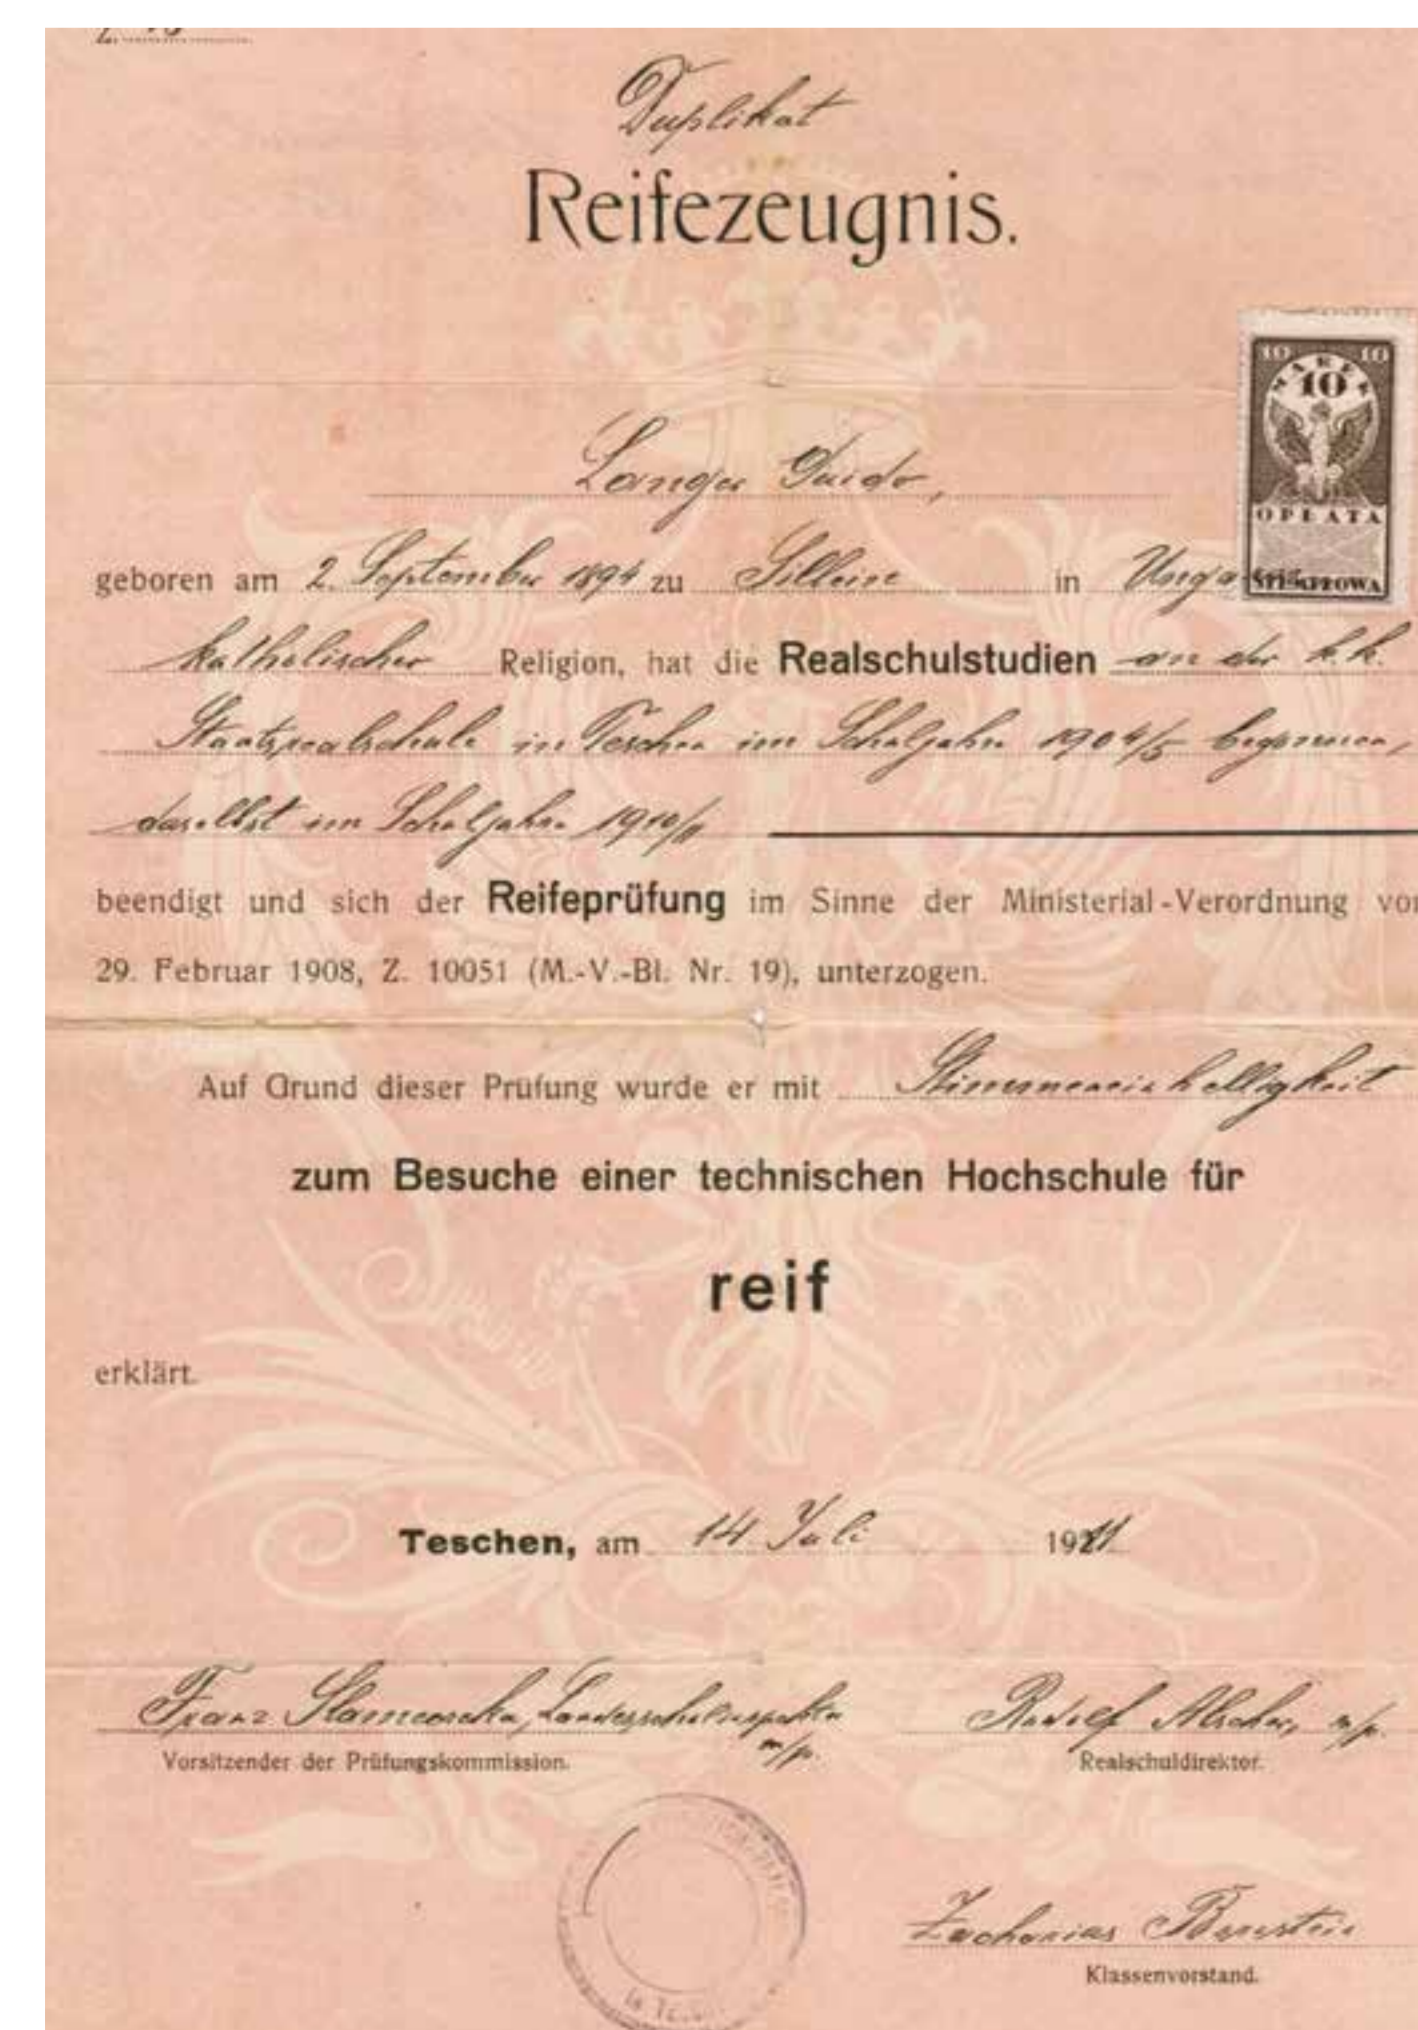 Duplikat
Reifezeugnis.
10 10
MAREK
10
OPŁATA
STEMPLOWA
Langer Guido,
geboren am 2. September 1894 zu Sillein in Ungarn
katholischer Religion, hat die Realschulstudien an der k.k.
Staatsrealschule in Teschen im Schuljahre 1904/5 begonnen,
daselbst im Schuljahre 1910/11
beendigt und sich der Reifeprüfung im Sinne der Ministerial-Verordnung vom
29. Februar 1908, Z. 10051 (M.-V.-Bl. Nr. 19), unterzogen.
Auf Grund dieser Prüfung wurde er mit Stimmeneinhelligkeit
zum Besuche einer technischen Hochschule für
reif
erklärt.
Teschen, am 14 Juli 1911
Franz Slameczka, Landesschulinspektor m/p. Rudolf Alscher, m/p.
Vorsitzender der Prüfungskommission. Realschuldirektor.
Zacharias Bernstein
Klassenvorstand.